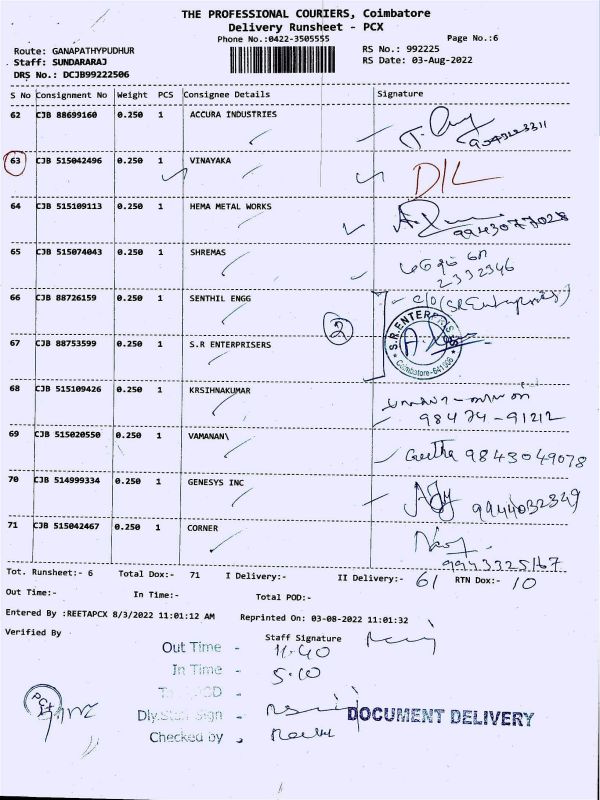 THE PROFESSIONAL COURIERS, Coimbatore
Delivery Runsheet - PCX
Phone No.:0422-3505555
Page No.:6
Route: GANAPATHYPUDHUR
RS No.: 992225
Staff: SUNDARARAJ
RS Date: 03-Aug-2022
DRS No.: DCJB99222506
S No Consignment No Weight PCS Consignee Details Signature
62 CJB 88699160 0.250 1 ACCURA INDUSTRIES
63 CJB 515042496 0.250 1 VINAYAKA D/L
64 CJB 515109113 0.250 1 HEMA METAL WORKS
9943077028
65 CJB 515074043 0.250 1 SHREMAS
2332346
66 CJB 88726159 0.250 1 SENTHIL ENGG c/o (S.R Enterprises)
2
S.R.ENTERPRISES
Coimbatore-641006
67 CJB 88753599 0.250 1 S.R ENTERPRISERS
68 CJB 515109426 0.250 1 KRSIHNAKUMAR
98474-91212
69 CJB 515020550 0.250 1 VAMANAN\ Geetha 9843049078
70 CJB 514999334 0.250 1 GENESYS INC
9944032349
71 CJB 515042467 0.250 1 CORNER
9943325167
Tot. Runsheet:- 6 Total Dox:- 71 I Delivery:- II Delivery:- 61 RTN Dox:- 10
Out Time:- In Time:- Total POD:-
Entered By :REETAPCX 8/3/2022 11:01:12 AM Reprinted On: 03-08-2022 11:01:32
Verified By Staff Signature
Out Time - 11.40
In Time - 5.10
Dly.Staff Sign -
DOCUMENT DELIVERY
Checked by